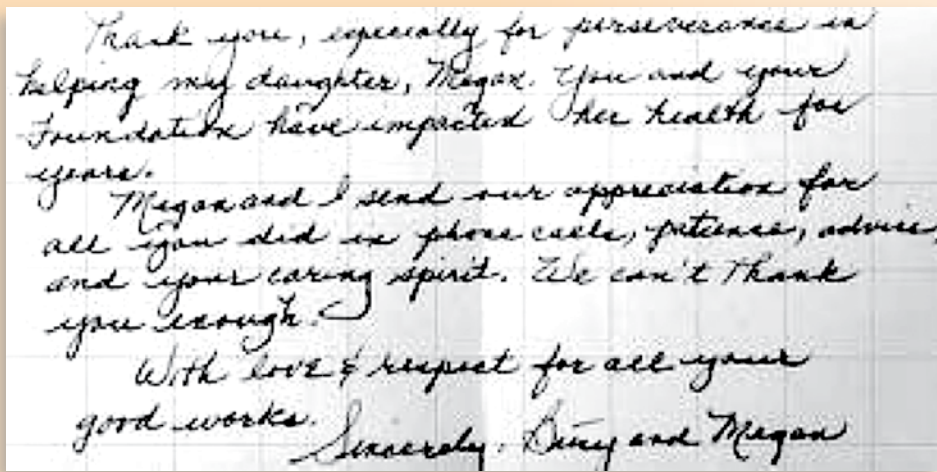 Thank you, especially for perseverance in
helping my daughter, Megan. You and your
Foundation have impacted her health for
years.
Megan and I send our appreciation for
all you did in phone calls, patience, advice,
and your caring spirit. We can't thank
you enough.
With love & respect for all your
good works.
Sincerely, and Megan